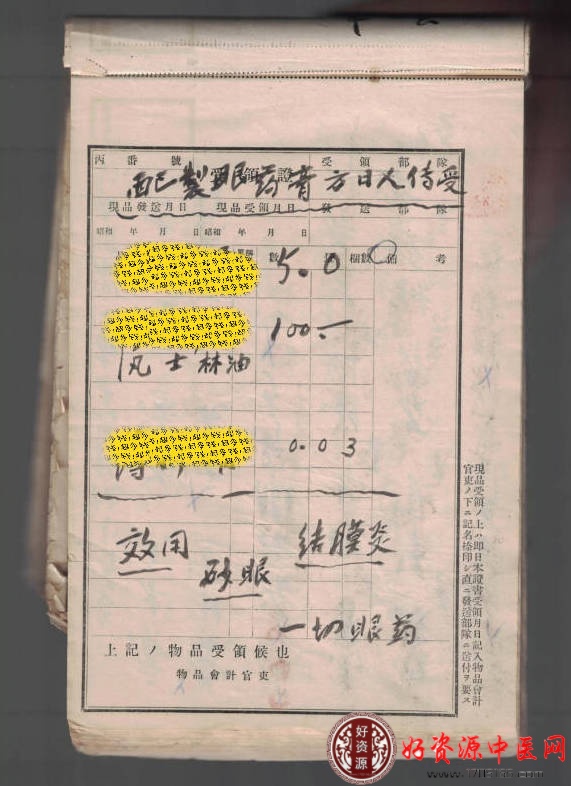 丙番號 受領證 受領部隊
配製眼药膏方日人传受
現品發送月日 現品受領月日 發送部隊
昭和 年 月 日 昭和 年 月 日
數 梱數 備考
5.0
100.-
凡士林油
0.03
效用 结膜炎
砂眼
一切眼药
上記ノ物品受領候也
物品會計官吏
現品受領ノ上ハ即日本證書受領月日記入物品會計
官吏ノ下ニ記名捺印シ直ニ發送部隊ニ送付ヲ要ス
好资源
好资源中医网